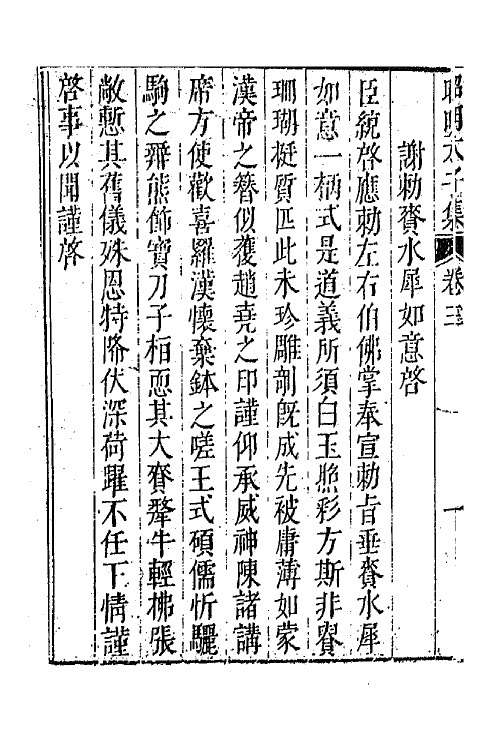 昭明太子集 卷三
謝勅賚水犀如意啓
臣統啓應勅左右伯佛掌奉宣勅旨垂賚水犀
如意一柄式是道義所須白玉照彩方斯非睿
珊瑚挺質匹此未珍雕剞旣成先被庸薄如蒙
漢帝之簪似獲趙堯之印謹仰承威神陳諸講
席方使歡喜羅漢懷棄鉢之嗟王式碩儒忻驪
駒之辭熊飾寶刀子桓恧其大賚犛牛輕拂張
敞慙其舊儀殊恩特降伏深荷躍不任下情謹
啓事以聞謹啓